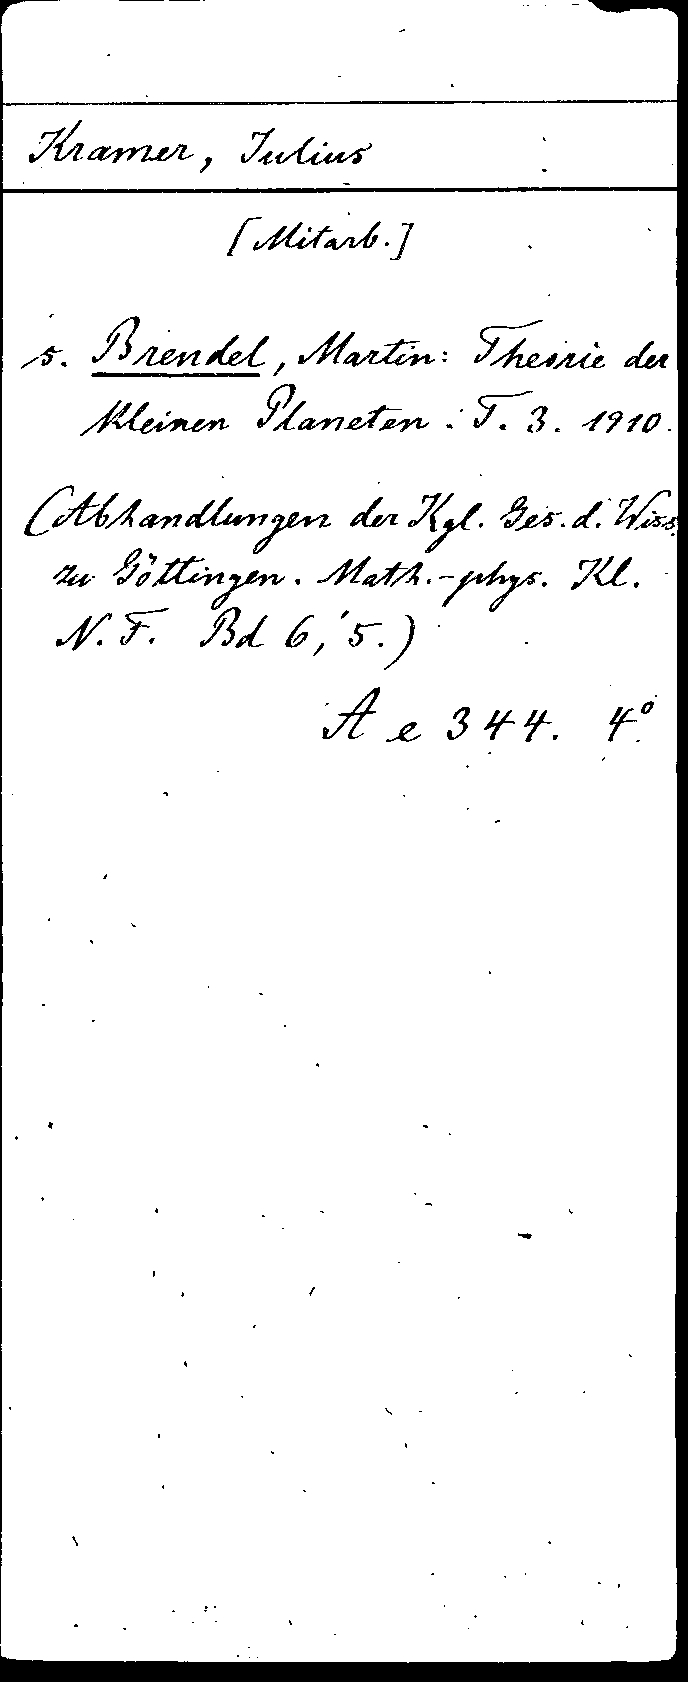 Kramer, Julius
[Mitarb.]
s. Brendel, Martin: Theorie der
kleinen Planeten. T. 3. 1910.
(Abhandlungen der Kgl. Ges. d. Wiss.
zu Göttingen. Math.-phys. Kl.
N. F. Bd 6, 5.)
A e 344. 4°